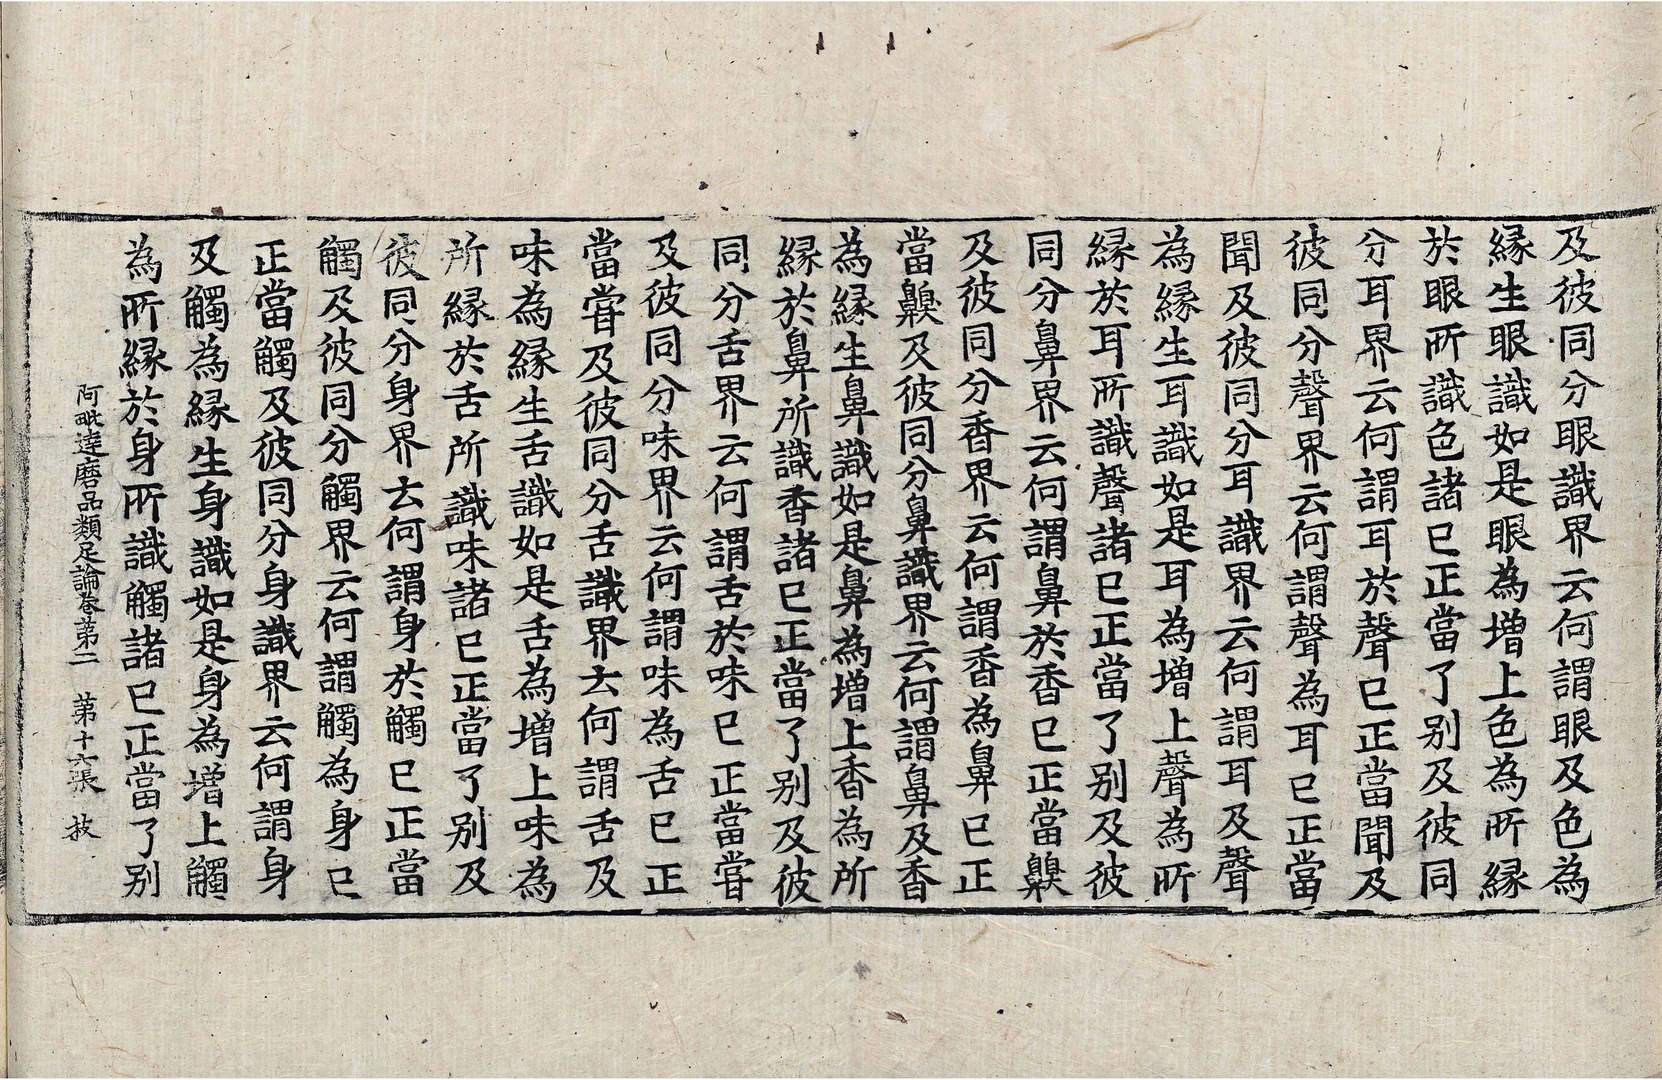 及彼同分眼識界云何謂眼及色為
緣生眼識如是眼為增上色為所緣
於眼所識色諸已正當了別及彼同
分耳界云何謂耳於聲已正當聞及
彼同分聲界云何謂聲為耳已正當
聞及彼同分耳識界云何謂耳及聲
為緣生耳識如是耳為增上聲為所
緣於耳所識聲諸已正當了別及彼
同分鼻界云何謂鼻於香已正當齅
及彼同分香界云何謂香為鼻已正
當齅及彼同分鼻識界云何謂鼻及香
為緣生鼻識如是鼻為增上香為所
緣於鼻所識香諸已正當了別及彼
同分舌界云何謂舌於味已正當甞
及彼同分味界云何謂味為舌已正
當甞及彼同分舌識界云何謂舌及
味為緣生舌識如是舌為增上味為
所緣於舌所識味諸已正當了別及
彼同分身界云何謂身於觸已正當
觸及彼同分觸界云何謂觸為身已
正當觸及彼同分身識界云何謂身
及觸為緣生身識如是身為增上觸
為所緣於身所識觸諸已正當了別
阿毗達磨品類足論卷第二 第十六張 技